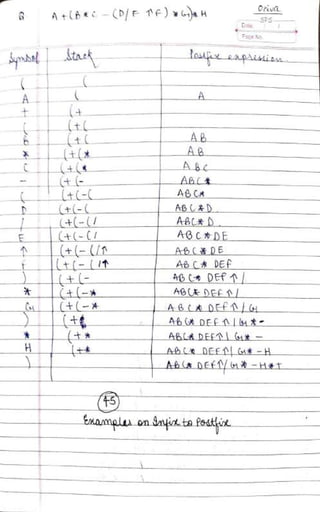 Q A + (B * C - (D / E ↑ F) * G) * H
Date
Page No.
Symbol Stack Postfix expression
( (
A ( A
+ (+
( (+(
B (+( AB
* (+(* AB
C (+(* ABC
- (+(- ABC*
( (+(-( ABC*
D (+(-( ABC*D
/ (+(-(/ ABC*D
E (+(-(/ ABC*DE
↑ (+(-(/↑ ABC*DE
F (+(-(/↑ ABC*DEF
) (+(- ABC*DEF↑/
* (+(-* ABC*DEF↑/
G (+(-* ABC*DEF↑/G
) (+ ABC*DEF↑/G*-
* (+* ABC*DEF↑/G*-
H (+* ABC*DEF↑/G*-H
) ABC*DEF↑/G*-H*+
45
Examples on Infix to Postfix